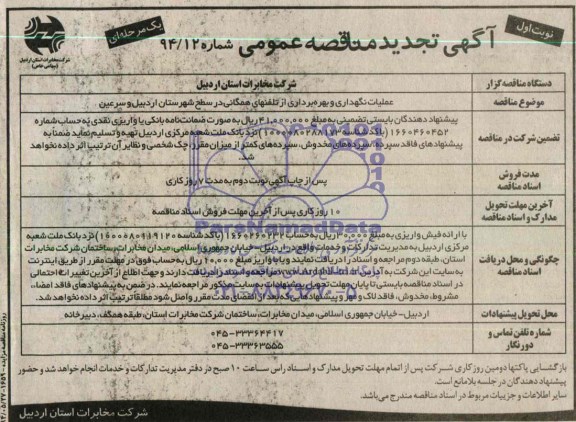 نوبت اول
آگهی تجدید مناقصه عمومی شماره ۹۴/۱۲
یک مرحله‌ای
شرکت مخابرات استان اردبیل
(سهامی خاص)
دستگاه مناقصه گزار
شرکت مخابرات استان اردبیل
موضوع مناقصه
عملیات نگهداری و بهره برداری از تلفنهای همگانی در سطح شهرستان اردبیل و سرعین
تضمین شرکت در مناقصه
پیشنهاد دهندگان بایستی تضمینی به مبلغ ۴۱,۰۰۰,۰۰۰ ریال به صورت ضمانت نامه بانکی یا واریزی نقدی به حساب شماره
۱۶۶۰۴۶۰۴۵۲ (با کد شناسه نزد بانک ملت شعبه مرکزی اردبیل تهیه و تسلیم نماید ضمنا به
پیشنهادهای فاقد سپرده، سپرده‌های مخدوش، سپرده‌های کمتر از میزان مقرر، چک شخصی و نظایر آن ترتیب اثر داده نخواهد
شد.
مدت فروش
اسناد مناقصه
پس از چاپ آگهی نوبت دوم به مدت ۷ روز کاری
آخرین مهلت تحویل
مدارک و اسناد مناقصه
۱۰ روز کاری پس از آخرین مهلت فروش اسناد مناقصه
چگونگی و محل دریافت
اسناد مناقصه
با ارائه فیش واریزی به مبلغ ریال به حساب (با کد شناسه نزد بانک ملت شعبه
مرکزی اردبیل به مدیریت تدارکات و خدمات واقع در اردبیل - خیابان جمهوری اسلامی، میدان مخابرات، ساختمان شرکت مخابرات
استان، طبقه دوم مراجعه و اسناد را دریافت نمایند و یا با واریز مبلغ ریال به حساب فوق در مهلت مقرر از طریق اینترنت
به سایت این شرکت به آدرس مراجعه و اسناد را دریافت دارند و جهت اطلاع از آخرین تغییرات احتمالی
در اسناد مناقصه بایستی تا پایان مهلت تحویل پیشنهادات به سایت مذکور مراجعه نمایند. در ضمن به پیشنهادهای فاقد امضاء،
مشروط، مخدوش، فاقد لاک و مهر و پیشنهادهایی که بعد از انقضای مدت مقرر واصل شود مطلقا ترتیب اثر داده نخواهد شد.
محل تحویل پیشنهادات
اردبیل - خیابان جمهوری اسلامی، میدان مخابرات، ساختمان شرکت مخابرات استان، طبقه همکف، دبیرخانه
شماره تلفن تماس و
دورنگار
۰۴۵-۳۳۳۶۴۴۱۷
۰۴۵-۳۳۳۶۳۵۵۵
بازگشایی پاکتها دومین روز کاری شرکت پس از اتمام مهلت تحویل مدارک و اسناد راس ساعت ۱۰ صبح در دفتر مدیریت تدارکات و خدمات انجام خواهد شد و حضور
پیشنهاد دهندگان در جلسه بلامانع است.
سایر اطلاعات و جزییات مربوط در اسناد مناقصه مندرج می‌باشد.
شرکت مخابرات استان اردبیل
ParsNamadData